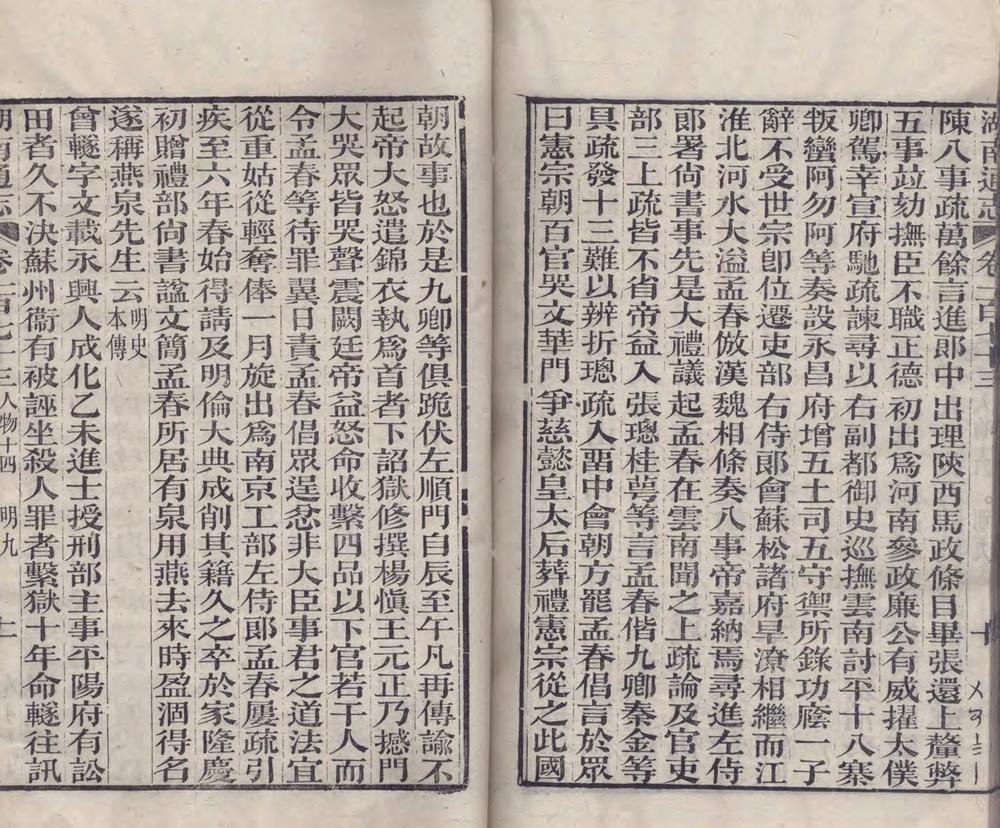 湖南通志 卷一百七十三
陳八事疏萬餘言進郎中出理陝西馬政條目畢張還上釐弊
五事竝劾撫臣不職正德初出爲河南參政廉公有威擢太僕
卿駕幸宣府馳疏諫尋以右副都御史巡撫雲南討平十八寨
叛蠻阿勿阿等奏設永昌府增五土司五守禦所錄功廕一子
辭不受世宗卽位遷吏部右侍郎會蘇松諸府旱潦相繼而江
淮北河水大溢孟春倣漢魏相條奏八事帝嘉納焉尋進左侍
郎署尙書事先是大禮議起孟春在雲南聞之上疏論及官吏
部三上疏皆不省帝益入張璁桂萼等言孟春偕九卿秦金等
具疏發十三難以辨折璁疏入畱中會朝方罷孟春倡言於眾
曰憲宗朝百官哭文華門爭慈懿皇太后葬禮憲宗從之此國
朝故事也於是九卿等俱跪伏左順門自辰至午凡再傳諭不
起帝大怒遣錦衣執爲首者下詔獄修撰楊愼王元正乃撼門
大哭眾皆哭聲震闕廷帝益怒命收繫四品以下官若干人而
令孟春等待罪翼日責孟春倡眾逞忿非大臣事君之道法宜
從重姑從輕奪俸一月旋出爲南京工部左侍郎孟春屢疏引
疾至六年春始得請及明倫大典成削其籍久之卒於家隆慶
初贈禮部尙書諡文簡孟春所居有泉用燕去來時盈涸得名
遂稱燕泉先生云明史本傳
曾轍字文載永興人成化乙未進士授刑部主事平陽府有訟
田者久不決蘇州衞有被誣坐殺人罪者繫獄十年命轍往訊
湖南通志 卷一百七十三 人物十四 明九 十一